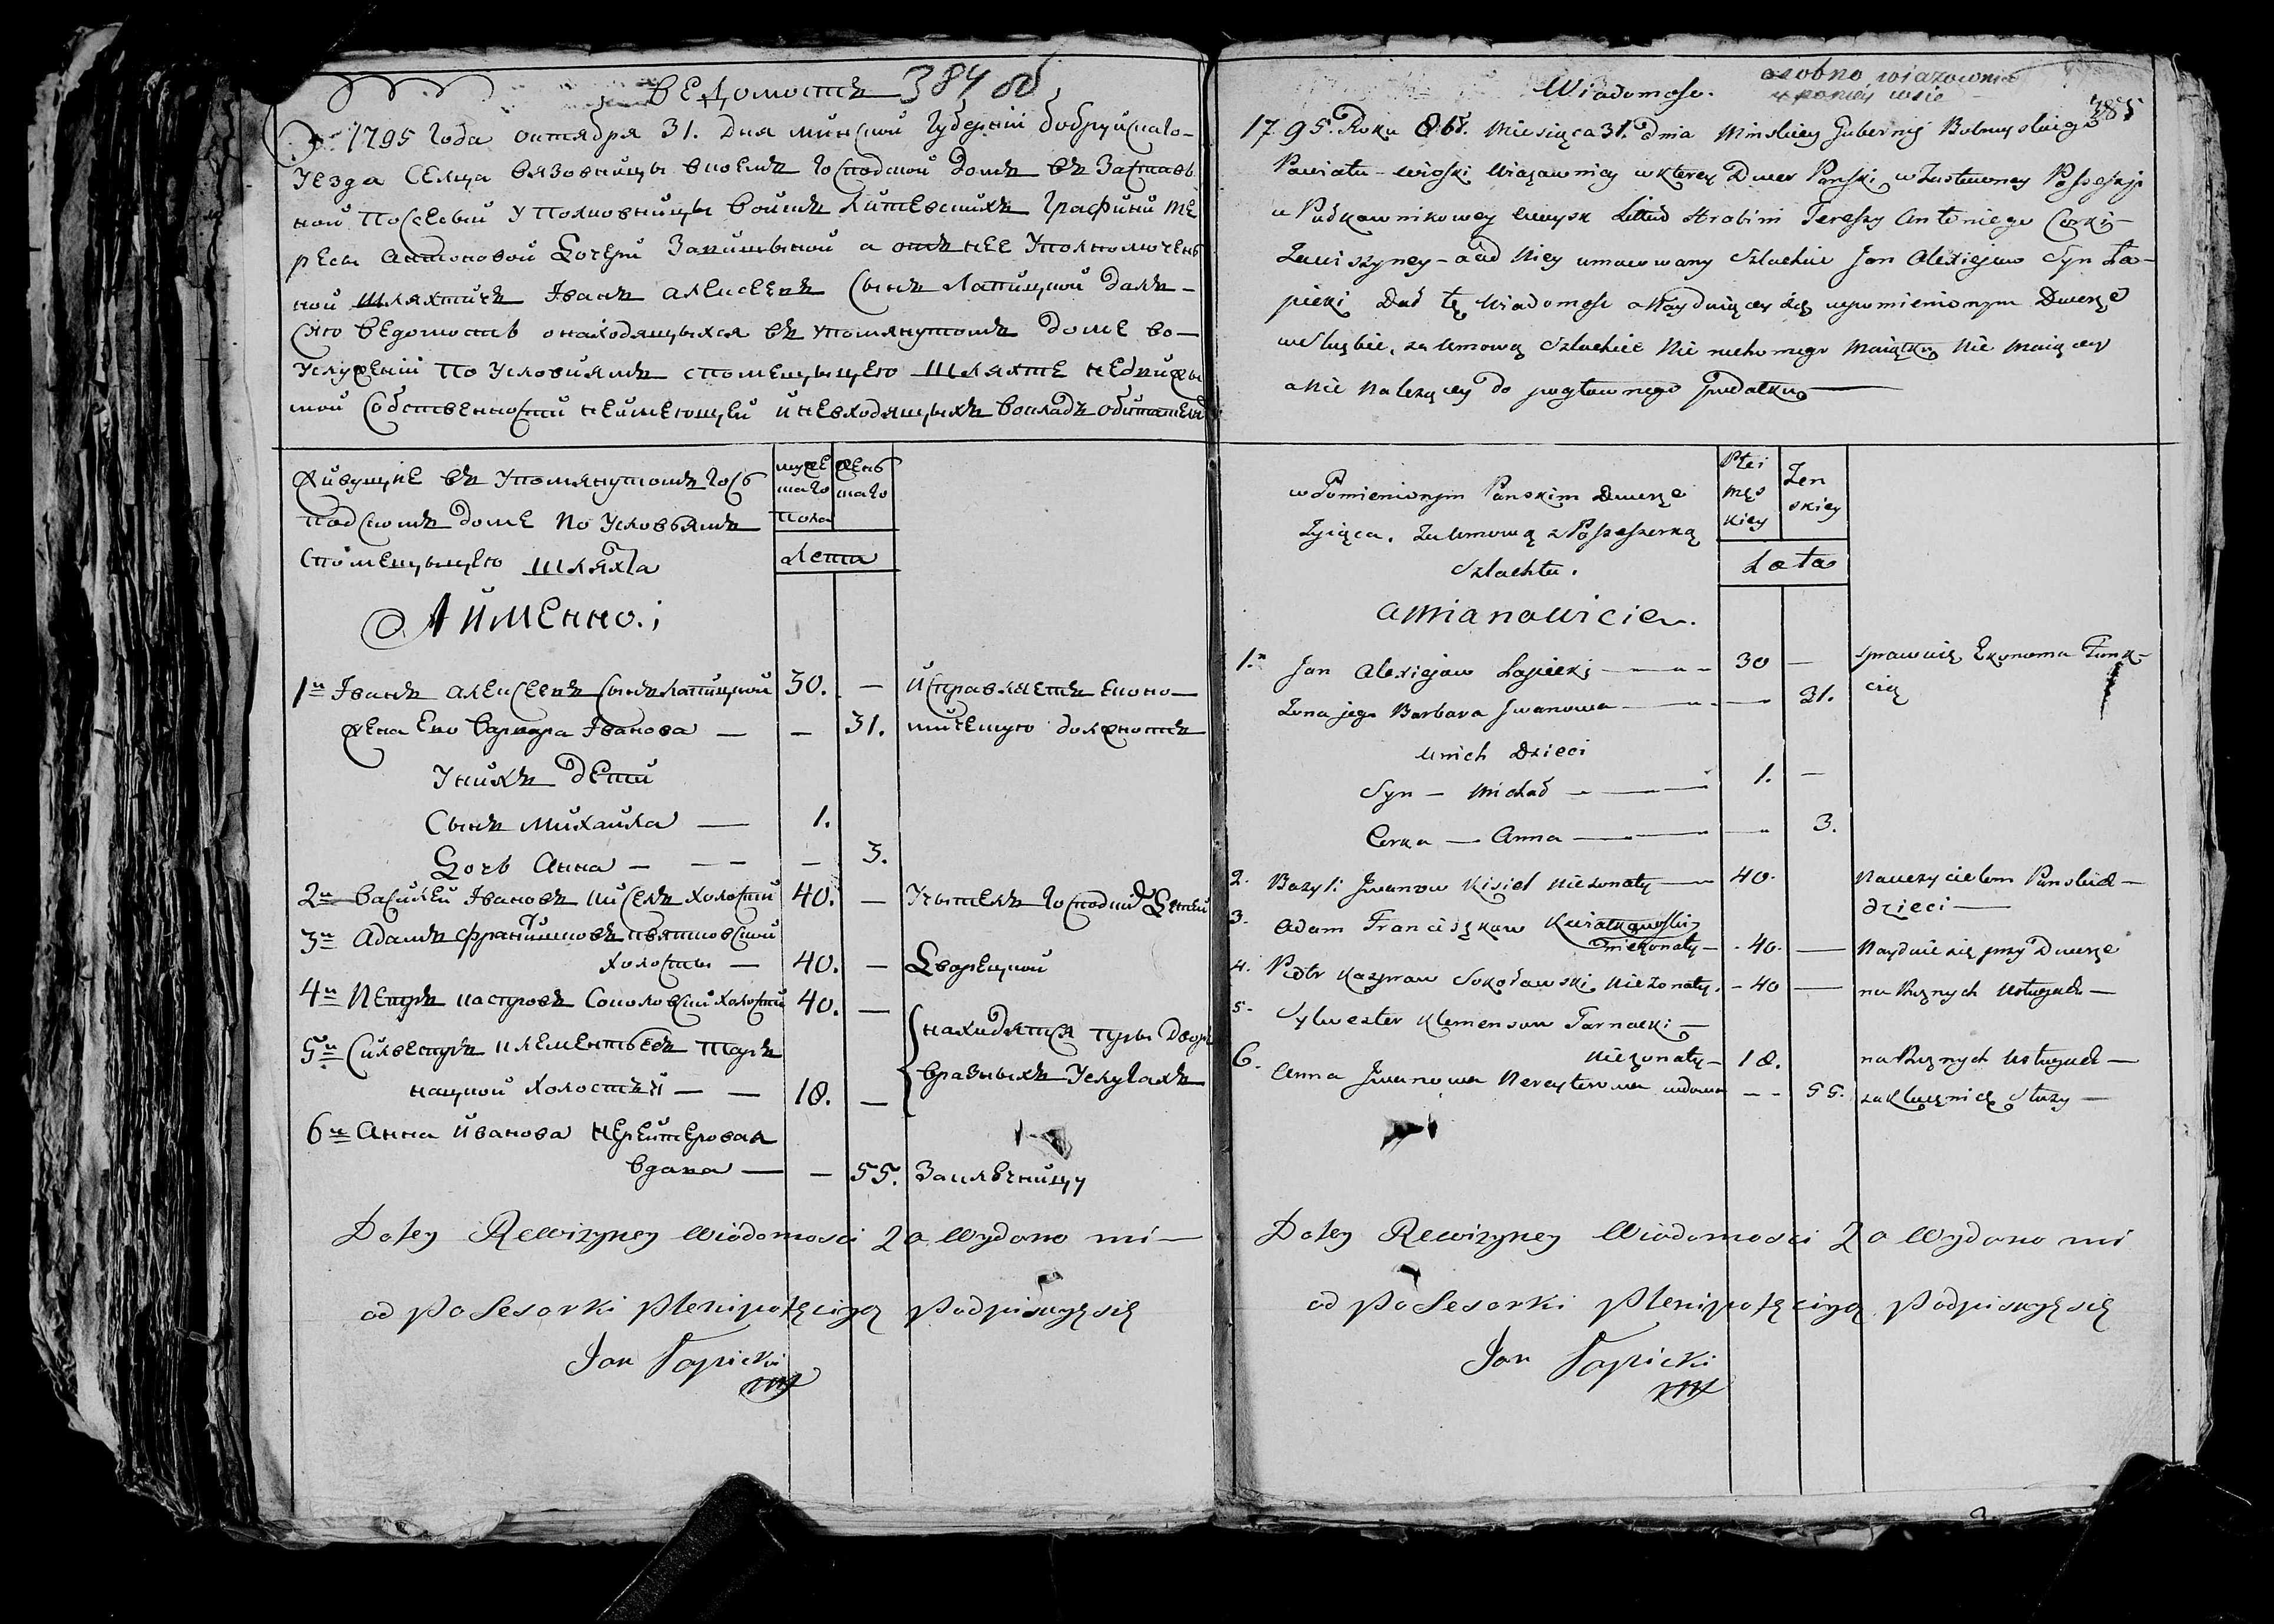 Ведомость 384 об
1795 года октября 31. дня минской губернии бобруйского
уезда сельца Вязовницы в коемъ господской домъ въ застав
ной посессыи у полковницы войскъ литевскихъ графини те
ресы антоновой дочери а отъ нее уполномочен
ной шляхтичъ Іванъ алексеевъ сынъ лапицкой далъ
сию ведомость о находящыхся въ упомянутомъ доме во
услужении по условиямъ с помещыцею шляхте недвижы
мой собственности неимеющей и невходящыхъ в окладъ
жывущие въ упомянутомъ гос
подскомъ доме по условьямъ
с помещыцею шляхта
муже женс
каго каго
пола
лета
А именно:
1й Іванъ алексеевъ сынъ лапицкой 30. — исправляетъ еконо
жена Ево Варвара Іванова — — 31. мическую должность
у нихъ дети
сынъ михайла — 1.
дочь Анна — — — — 3.
2й Василей Івановъ кисель холостый 40. — учытель господскихъ детей
3й Адамъ францишковъ квятковской
холосты — 40. — дворецкой
4й Петръ касперовъ соколовский холостый 40. —
5й Сильвестръ клементьевъ тар
нацкой холостый — — 18. —
находятся при дворе
в разныхъ услугахъ
6й Анна иванова
вдова — — 55. заключницу
Do tey Rewizyney Wiadomosci za Wydano mi
od posesorki plenipotęcyą podpisuję się
Jan Łapicki
mp
Wiadomosc.
osobno wiazownia
385
1795. Roku 8br. miesiąca 31. dnia Minskiey Gubernij Bobruyskiego
Powiatu wioski Wiązawnicy w ktorey Dwor Panski w Zastawney Possessji
u Pułkownikowey woysk Littů Hrabini Teressy Antoniego Corki
Zawiszyney a od Niey umocowany Szlachcic Jan Alexiejew Syn Ła-
picki Dał tę Wiadomosc o Nayduiącey się w pomienionym Dworze
w Służbie, za Umową Szlachcie Nie ruchomego maiątku Nie maiącey
a Nie Należącey do pogłownego podatku
w Pomienionym Panskim Dworze
Zyiąca, za Umową z Possessorką
Szlachta.
Płci
męs
kiey
Żen
skiey
Lata
A Mianowicie.
1. Jan Alexiejew Łapicki 30 — sprawuię Ekonoma Funk-
Żona jego Barbara Jwanowa — 31. cią
u nich Dzieci
Syn — Michał 1. —
Corka — Anna — 3.
2. Bazyli Jwanow Kisiel nieżonaty 40. Nauczycielem Panskich
dzieci
3. Adam Franciszkow Kwiatkowski
nieżonaty 40. — Nayduie się przy Dworze
4. Piotr Kazprow Sokołowski nieżonaty. 40 — na Rużnych Usługach
5. Sylwester Klemensow Tarnacki
nieżonaty 18. na Rużnych Usługach
6. Anna Jwanowa wdowa — 55. za Klucznicę służy
Do tey Rewizyney Wiadomosci za Wydano mi
od posesorki plenipotęcyą podpisuję się
Jan Łapicki
mp